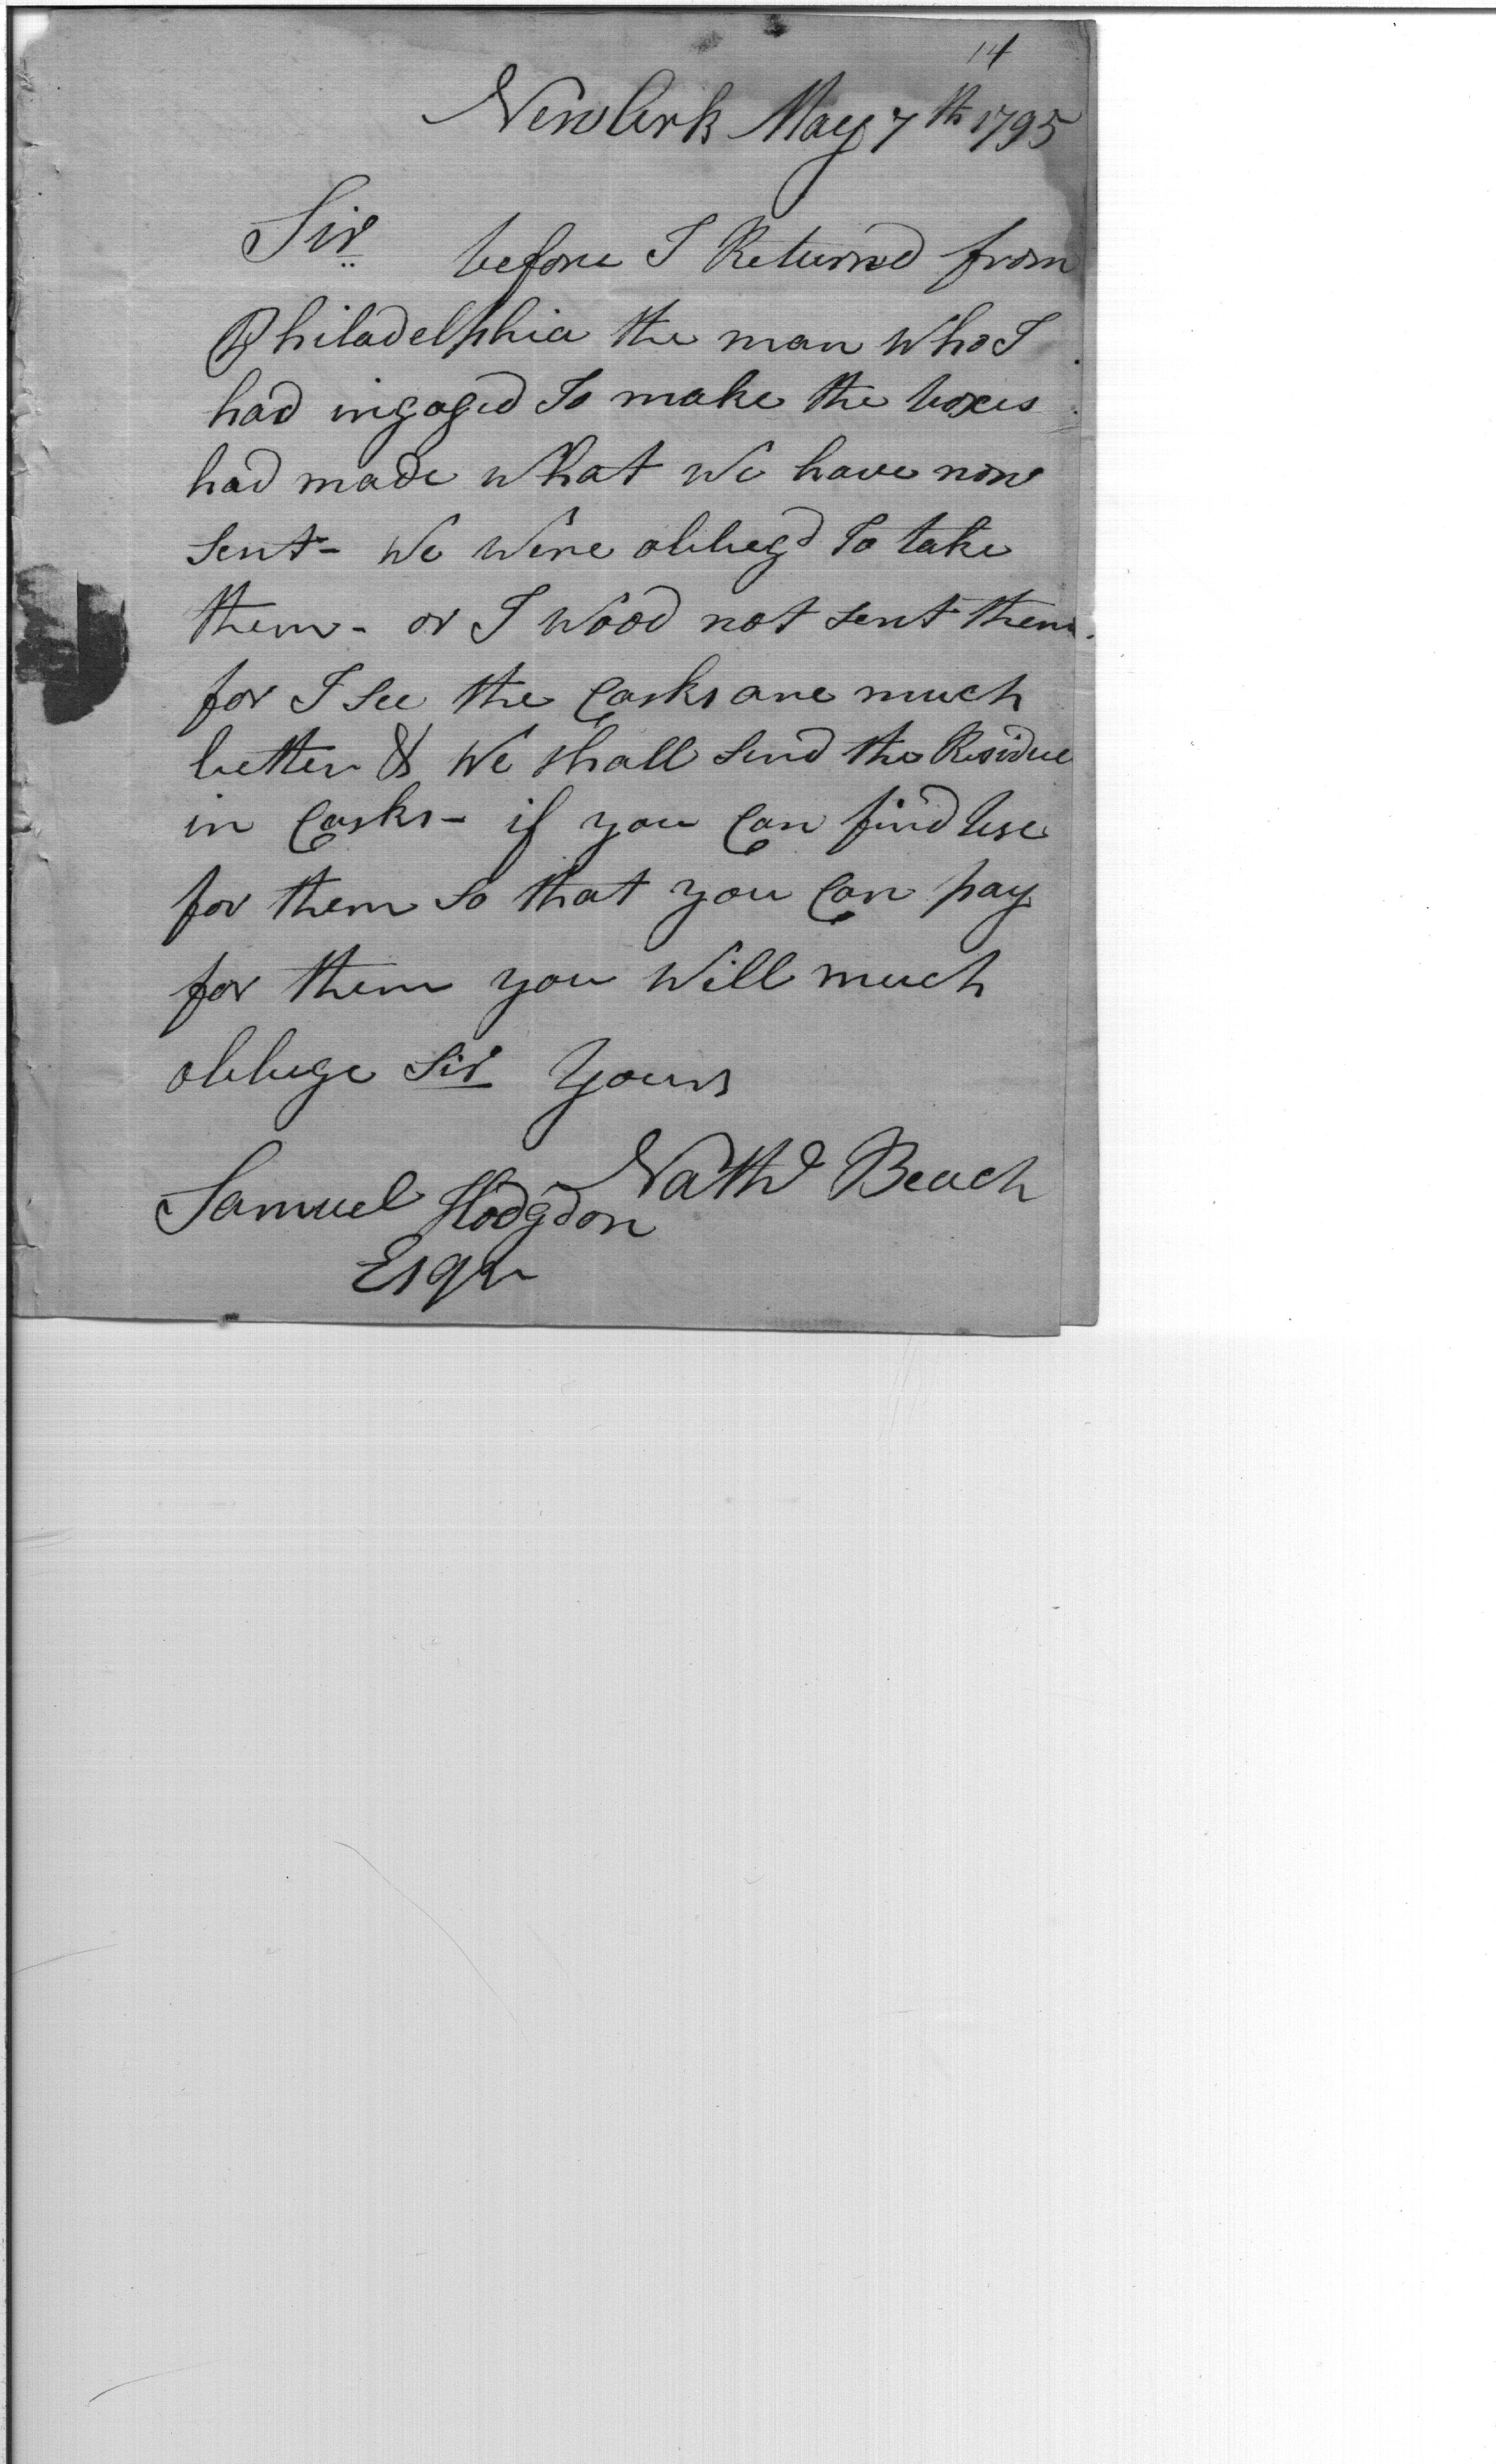 14
NewArk May 7th 1795
Sir
before I Returnd from
Philadelphia the man who I
had ingaged To make the boxes
had made what we have now
sent - We Were oblieg'd To take
them - or I Wood not sent them
for I see the Casks are much
better & We shall send the Residue
in Casks - if you Can find Use
for them so that you Can pay
for them you Will much
obliege Sir Yours
Nathl Beach
Samuel Hodgdon
Esqr